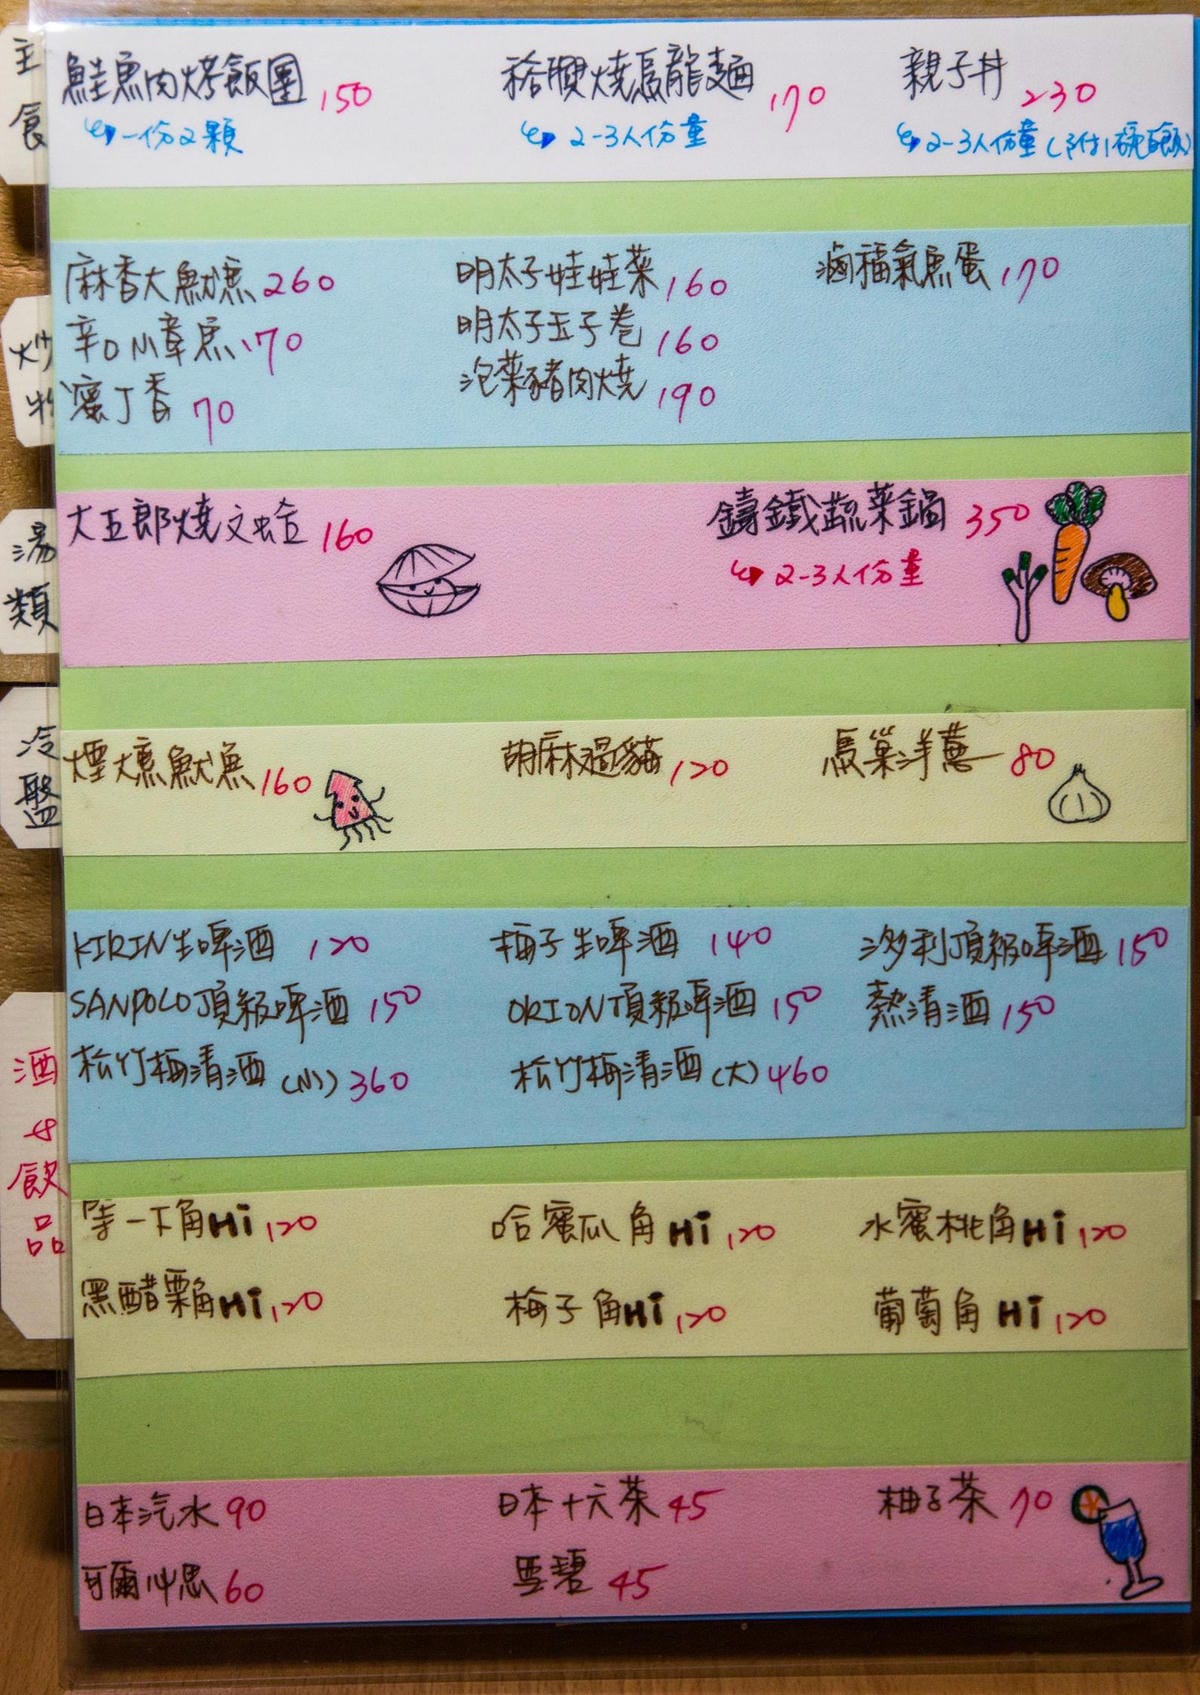 主食
鮭魚肉烤飯團 150
一份2顆
燒烏龍麵 170
2-3人份量
親子丼 230
2-3人份量(附1碗白飯)
炒物
麻香大魷魚 260
明太子娃娃菜 160
滷福氣魚蛋 170
辛口小章魚 170
明太子玉子卷 160
蜜丁香 70
泡菜豬肉燒 190
湯類
大五郎燒文蛤 160
鑄鐵蔬菜鍋 350
2-3人份量
冷盤
煙燻魷魚 160
胡麻過貓 120
馬巢洋蔥 80
酒飲品
KIRIN生啤酒 120
梅子生啤酒 140
沙多利頂級啤酒 150
SANPOLO頂級啤酒 150
ORION頂級啤酒 150
熱清酒 150
松竹梅清酒(小) 360
松竹梅清酒(大) 460
等一下角Hi 120
哈蜜瓜角Hi 120
水蜜桃角Hi 120
黑醋栗角Hi 120
梅子角Hi 120
葡萄角Hi 120
日本汽水 90
日本十六茶 45
柚子茶 70
可爾必思 60
雪碧 45